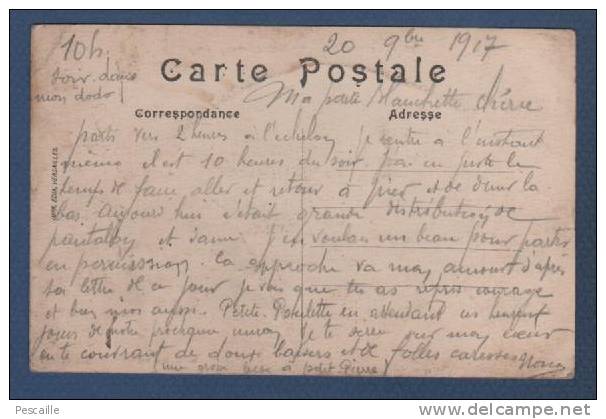 10h.
soir. dans
mon dodo
20 9bre 1917
Carte Postale
Ma petite Blanchette chérie
Correspondance Adresse
partis vers 2 heures à l'echelon je rentre à l'instant
même il est 10 heures du soir. j'ai eu juste le
temps de faire aller et retour à pied et de diner la
bas. aujourd'hui c'était grande distribution de
pantalon et j'en voulais un beau pour partir
en permission. ca approche va mon amour d'après
ta lettre de ce jour je vois que tu as repris courage
et bien moi aussi. Petite Poulette en attendant les heureux
jours de notre prochaine je te serre sur mon cœur
en te couvrant de doux baisers et de folles caresses
une grosse bise à petit Pierre
IMP. EDIA. VERSAILLES
Pescaille
delcampe.net